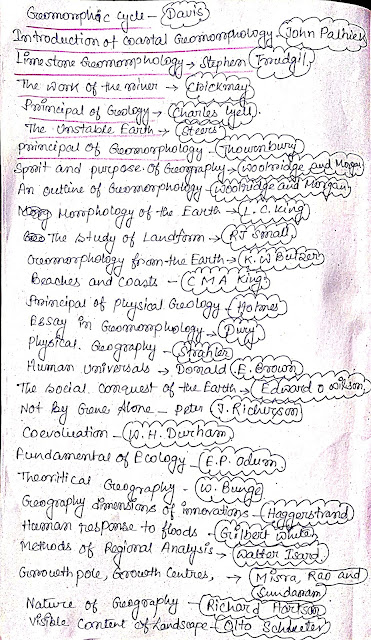 Geomorphic Cycle - Davis
Introduction of coastal Geomorphology - John Pethick
Limestone Geomorphology → Stephen Trudgil
The work of the river → Crickmay
Principal of Geology → Charles Lyell.
The Unstable Earth → Steers
principal of Geomorphology - Thournbury
Sprit and purpose of Geography → Woolridge and Morgan
An outline of Geomorphology - Woolridge and Morgan
Morphology of the Earth → L.C. King
The study of Landform → RJ Small
Geomorphology from the Earth → K.W Butzer
Beaches and Coasts - C M A King
Principal of physical Geology - Holmes
Essay in Geomorphology → Dury
Physical Geography - Strahler
Human Universals → Donald E. Brown
The Social Conquest of the Earth → Edward O Wilson
Not By Gene Alone - Peter J. Richerson
Coevoluation - W.H. Durham
Fundamental of Ecology - E.P. Odum
Theoritical Geography - W. Bunge
Geography dimensions of innovations - Haggerstrand
Human response to floods - Gilbert White
Methods of Regional Analysis → Walter Isard
Growth pole, Growth Centres, → Misra, Rao and
Sundaram
Nature of Geography - Richard Hartson
Visible Content of Landscape - Otto Schuleter